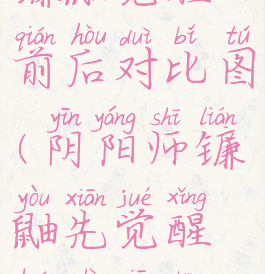 qián hòu duì bǐ tú
前后对比图
yīn yáng shī lián
(阴阳师镰
yòu xiān jué xǐng
鼬先觉醒